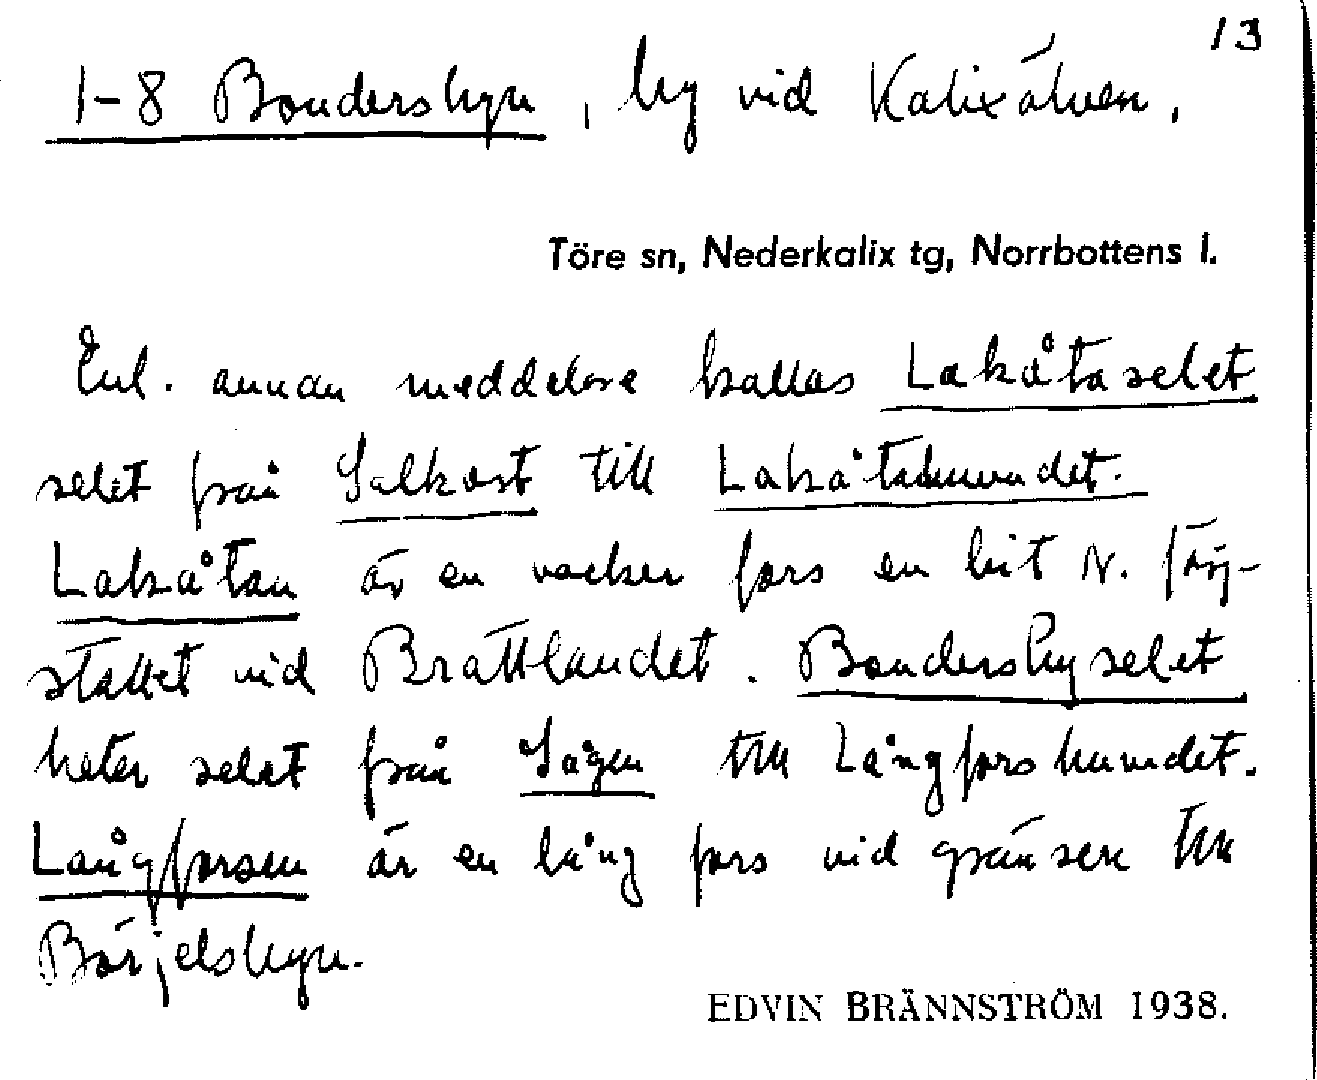 13
1-8 Bondersbyn, by vid Kalixälven.
Töre sn, Nederkalix tg, Norrbottens l.
Enl. annan meddelare kallas Lakåtaselet
selet från Salkost till Lakåtahuvudet.
Lakåtan är en vacker fors en bit N. färj-
stället vid Brattlandet. Bondersbyselet
heter selet från Sågen till Långforshuvudet.
Långforsen är en lång fors vid gränsen till
Börjelsbyn.
EDVIN BRÄNNSTRÖM 1938.